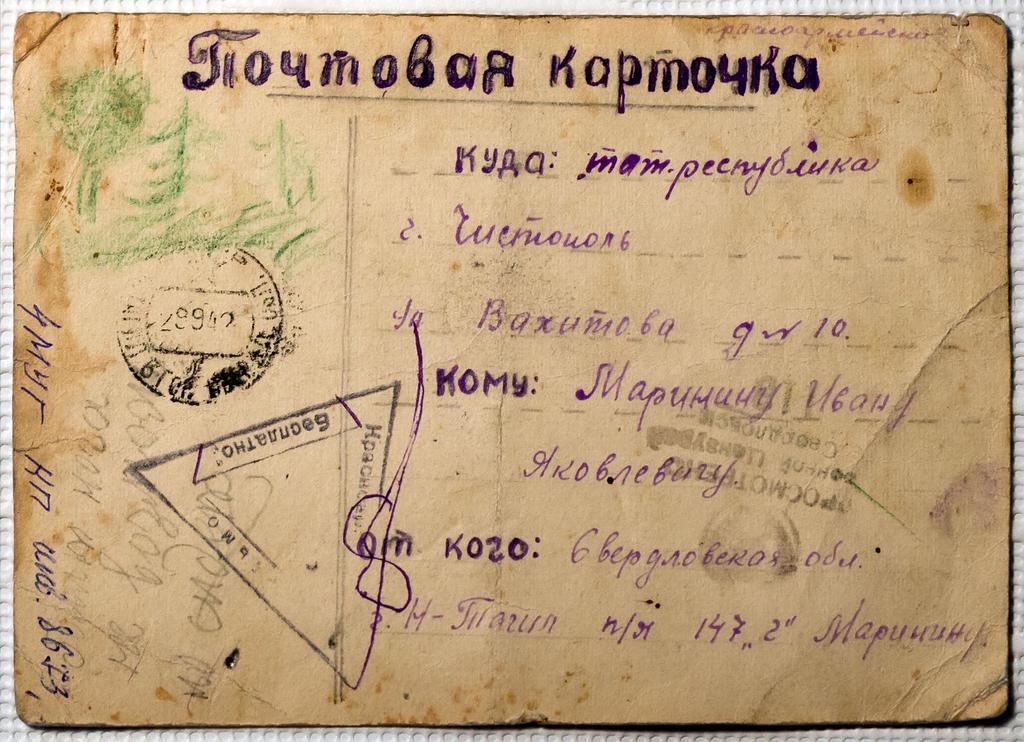 красноармейское
Почтовая карточка
куда: тат. республика
г. Чистополь
ул Вахитова д № 10.
кому: Маринину Ивану
Яковлевичу.
от кого: Свердловская обл.
г. Н-Тагил п/я 147 „2" Маринину.
29 9 42
Бесплатно
Красноар
ПРОСМОТРЕНО
Военной Цензурой
Свердловск
ЧМУГ НП инв. 8673,